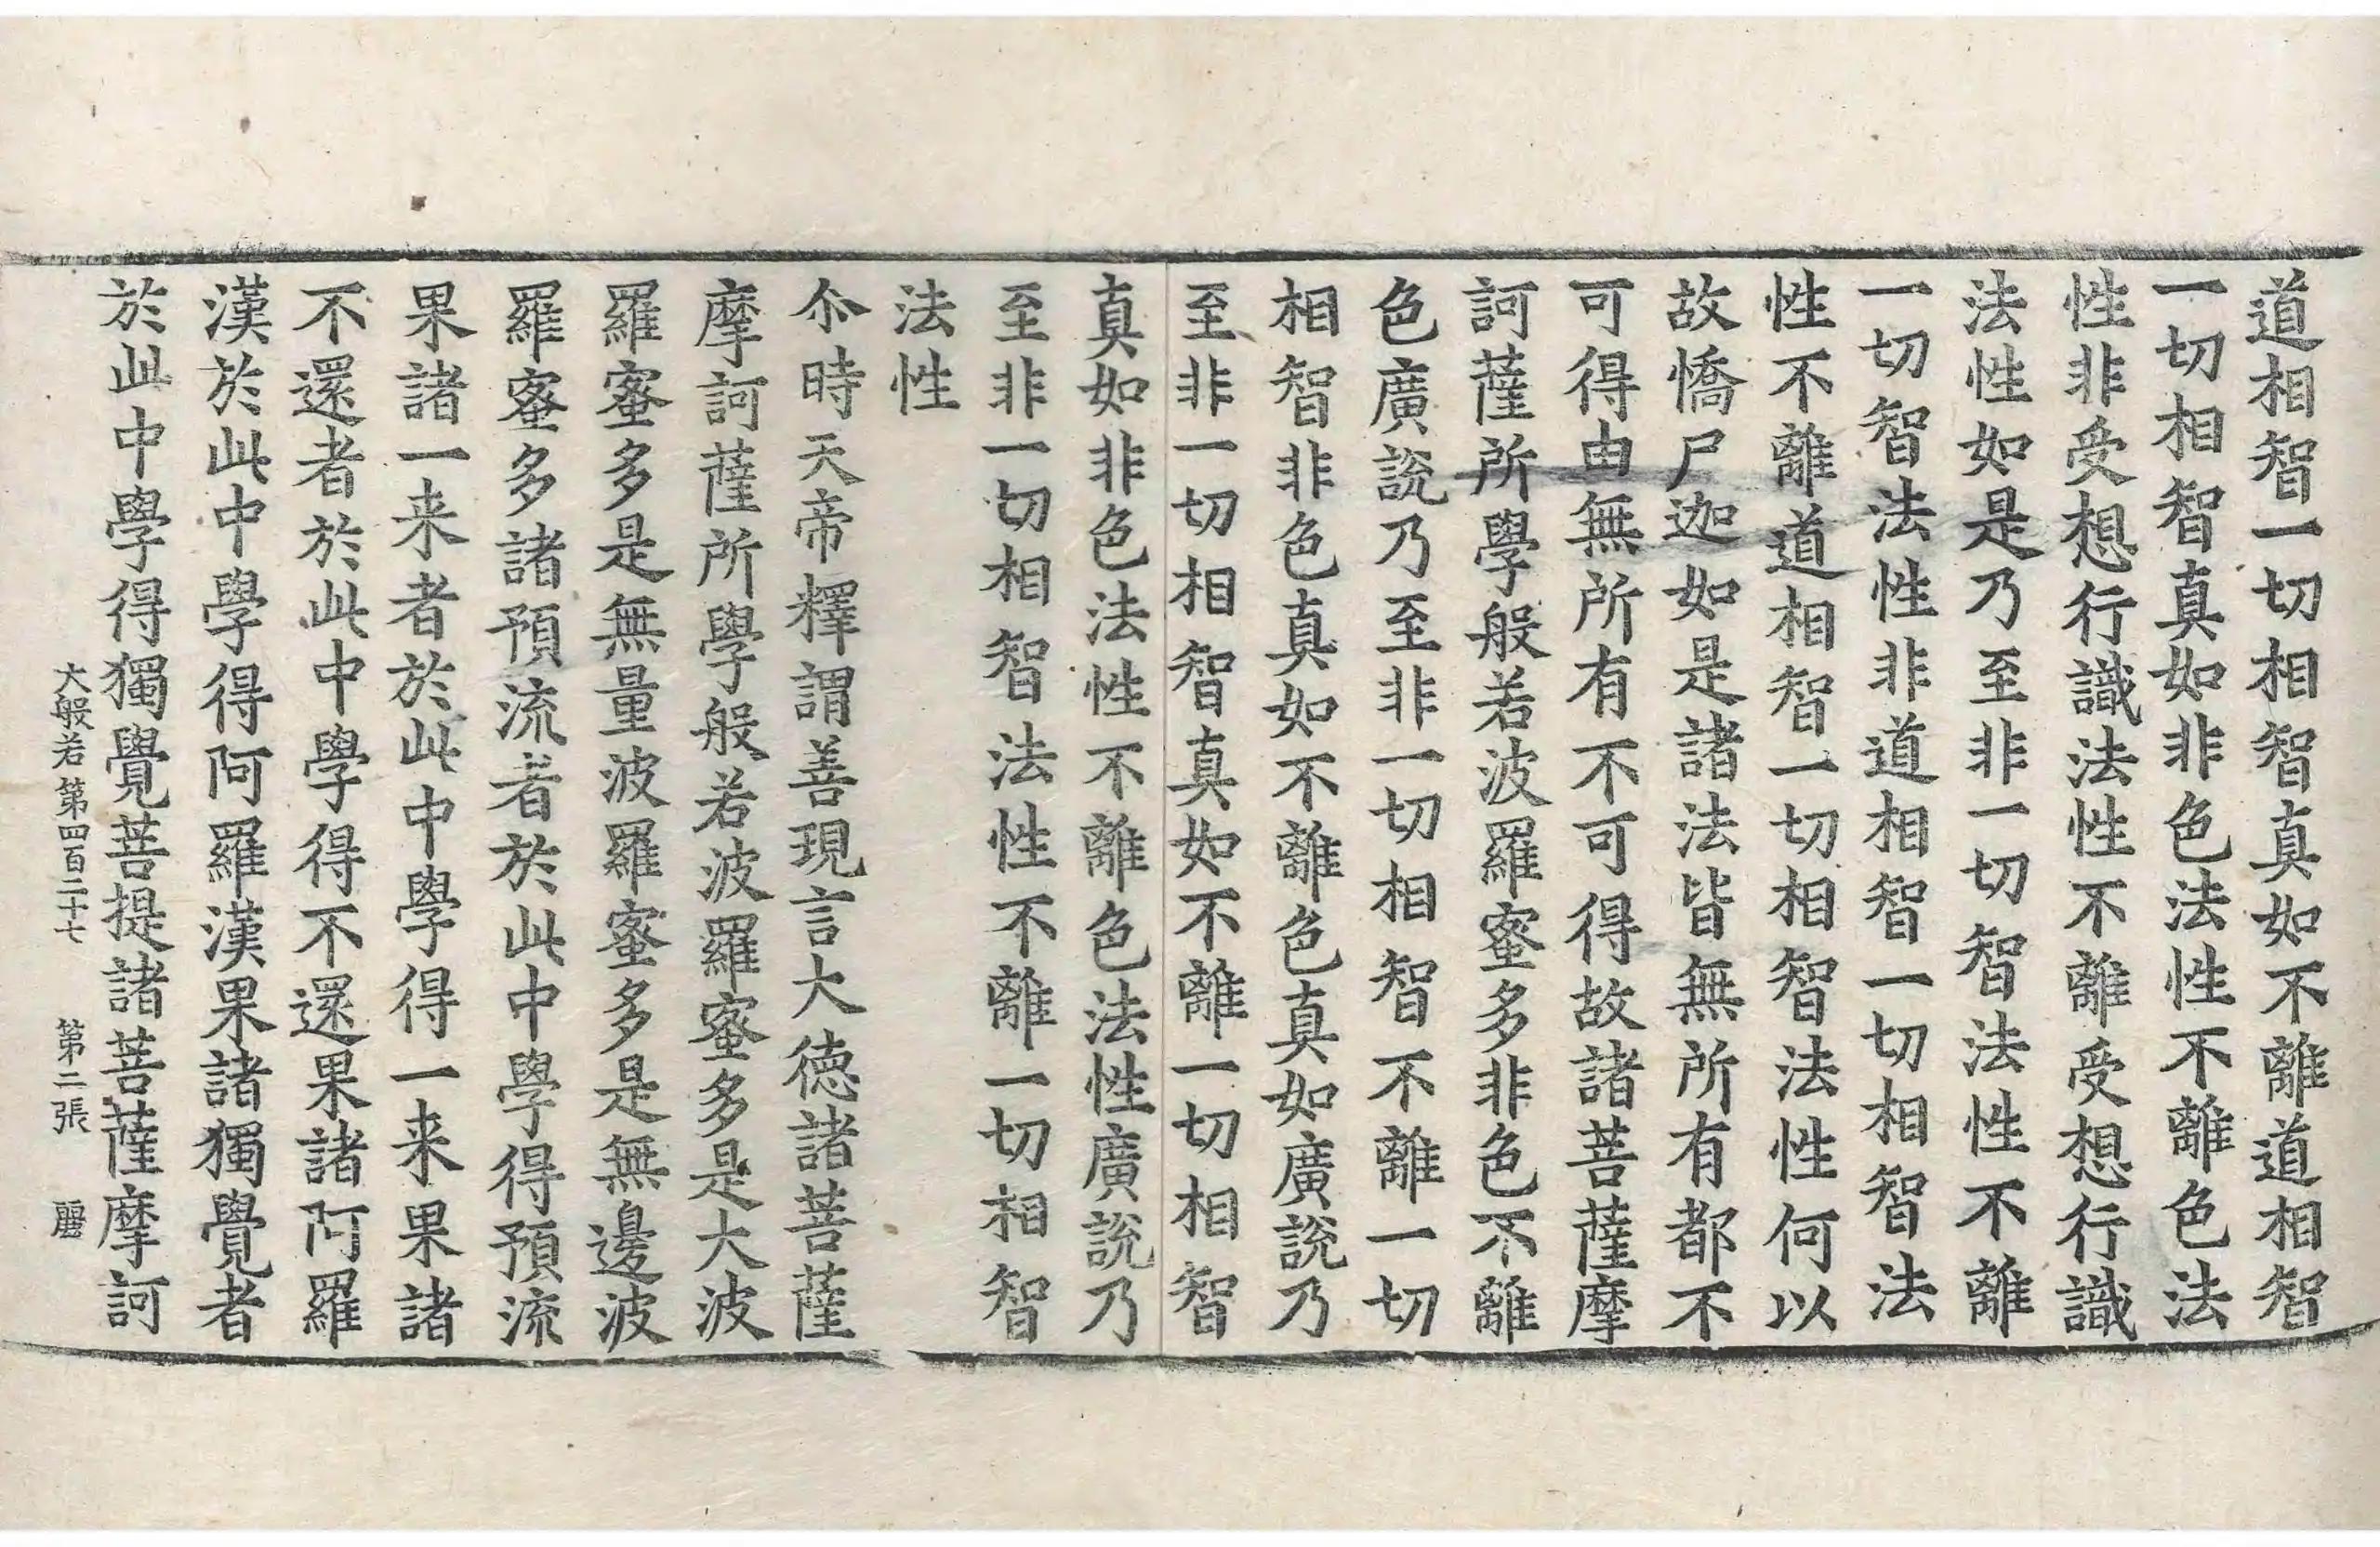 道相智一切相智真如不離道相智
一切相智真如非色法性不離色法
性非受想行識法性不離受想行識
法性如是乃至非一切智法性不離
一切智法性非道相智一切相智法
性不離道相智一切相智法性何以
故憍尸迦如是諸法皆無所有都不
可得由無所有不可得故諸菩薩摩
訶薩所學般若波羅蜜多非色不離
色廣說乃至非一切相智不離一切
相智非色真如不離色真如廣說乃
至非一切相智真如不離一切相智
真如非色法性不離色法性廣說乃
至非一切相智法性不離一切相智
法性
尒時天帝釋謂善現言大德諸菩薩
摩訶薩所學般若波羅蜜多是大波
羅蜜多是無量波羅蜜多是無邊波
羅蜜多諸預流者於此中學得預流
果諸一来者於此中學得一来果諸
不還者於此中學得不還果諸阿羅
漢於此中學得阿羅漢果諸獨覺者
於此中學得獨覺菩提諸菩薩摩訶
大般若第四百二十七 第二張 麗